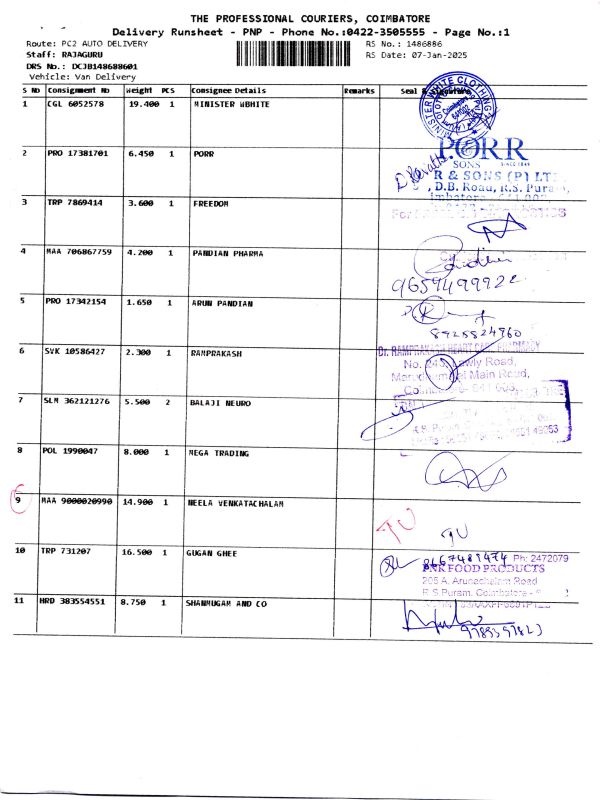 THE PROFESSIONAL COURIERS, COIMBATORE
Delivery Runsheet - PNP - Phone No.:0422-3505555 - Page No.:1
Route: PC2 AUTO DELIVERY RS No.: 1486886
Staff: RAJAGURU RS Date: 07-Jan-2025
DRS No.: DCJB148688601
Vehicle: Van Delivery
S No Consignment No Weight PCS Consignee Details Remarks Seal
1 CGL 6052578 19.400 1 MINISTER WBHITE
MINISTER WHITE CLOTHING
2 PRO 17381701 6.450 1 PORR
PORR
SONS
R & SONS (P) LT
, D.B. Road, R.S. Puram,
3 TRP 7869414 3.600 1 FREEDOM
4 MAA 706867759 4.200 1 PANDIAN PHARMA
9659499922
5 PRO 17342154 1.650 1 ARUN PANDIAN
8925824960
6 SVK 10586427 2.300 1 RAMPRAKASH
Dr. RAMPRAKASH HEART CARE
No. 243, Lawly Road,
Main Road,
7 SLM 362121276 5.500 2 BALAJI NEURO
8 POL 1990047 8.000 1 MEGA TRADING
9 MAA 9000020990 14.900 1 NEELA VENKATACHALAM
10 TRP 731207 16.500 1 GUGAN GHEE
8667481474 Ph: 2472079
PNR FOOD PRODUCTS
206 A, Arunachalam Road
R.S.Puram, Coimbatore -
11 HRD 383554551 8.750 1 SHANMUGAM AND CO